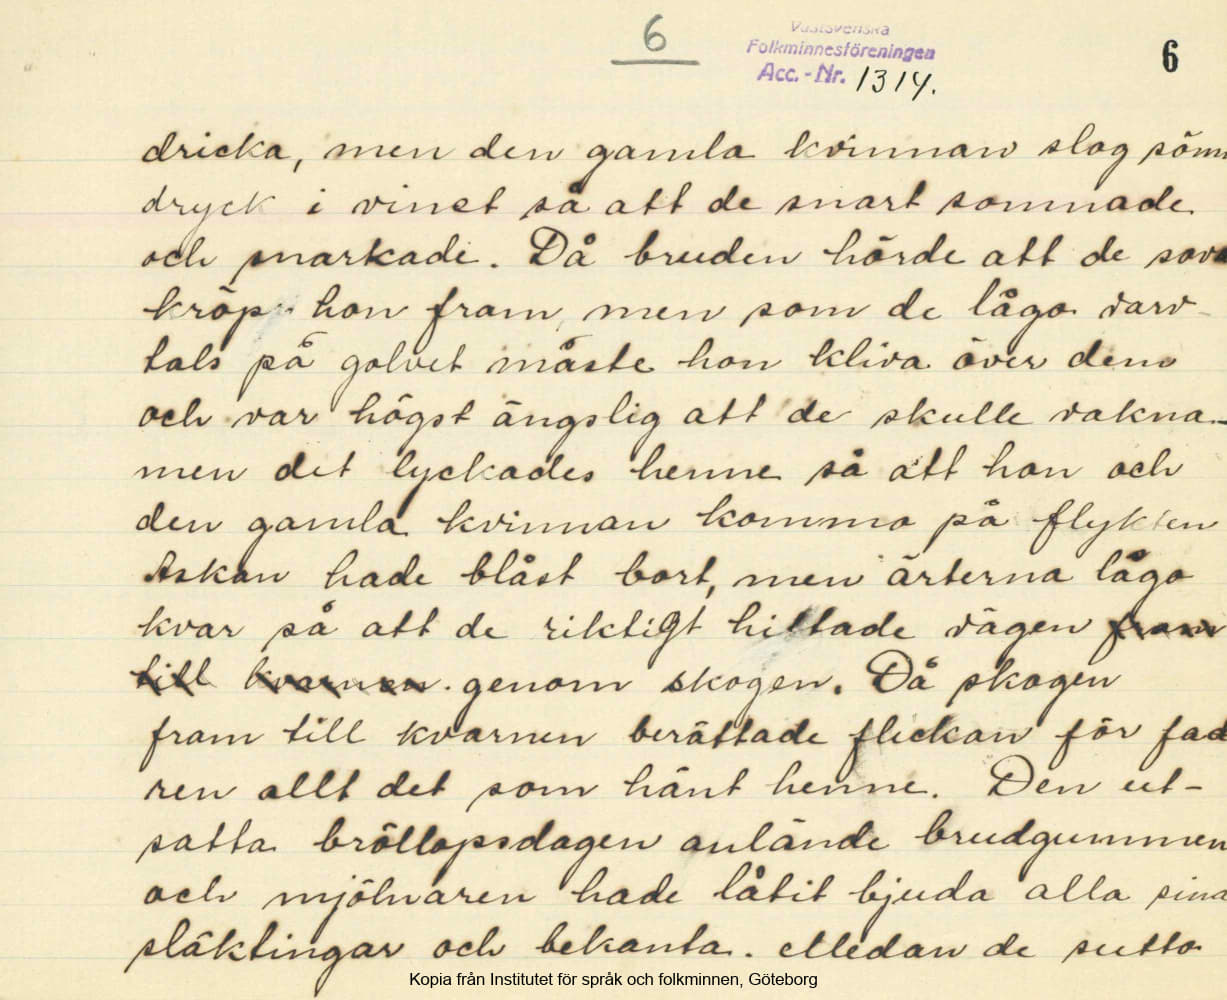 6
Västsvenska
Folkminnesföreningen
Acc.-Nr. 1314.
6
dricka, men den gamla kvinnan slog sömn
dryck i vinet så att de snart somnade
och snarkade. Då bruden hörde att de sova
kröp hon fram, men som de lågo varv-
tals på golvet måste hon kliva över dem
och var högst ängslig att de skulle vakna
men det lyckades henne så att hon och
den gamla kvinnan kommo på flykten
Askan hade blåst bort, men ärterna lågo
kvar så att de riktigt hittade vägen fram
till kvarnen. genom skogen. Då skogen
fram till kvarnen berättade flickan för fad
ren allt det som hänt henne. Den ut-
satta bröllopsdagen anlände brudgummen
och mjölnaren hade låtit bjuda alla sina
släktingar och bekanta. Medan de sutto
Kopia från Institutet för språk och folkminnen, Göteborg